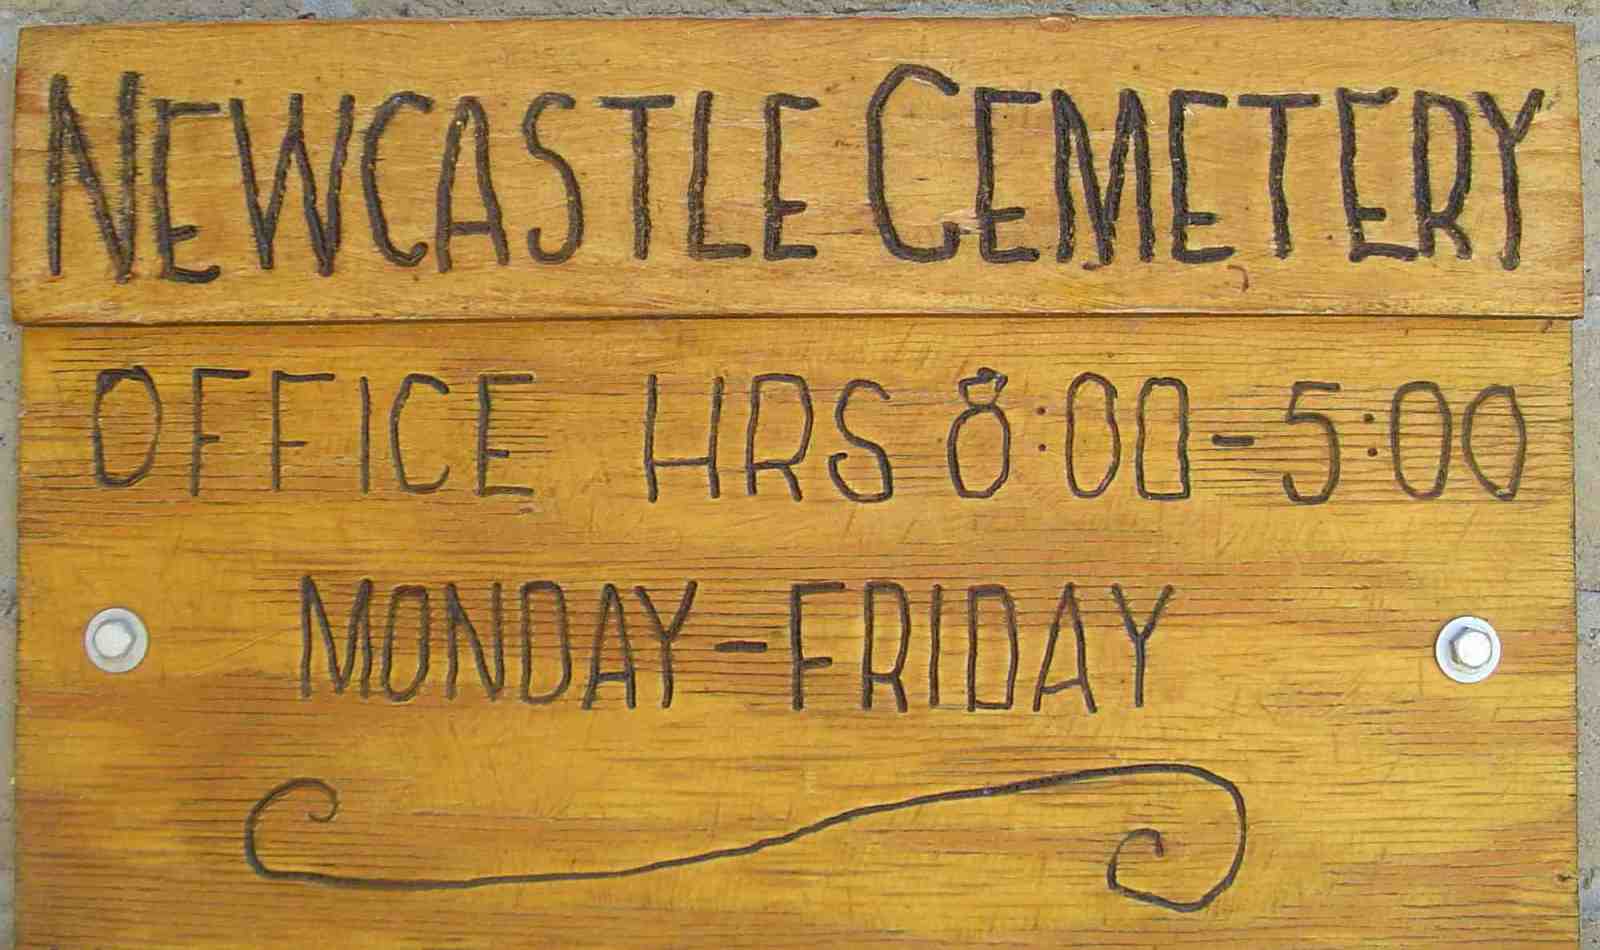 NEWCASTLE CEMETERY
OFFICE HRS 8:00-5:00
MONDAY-FRIDAY